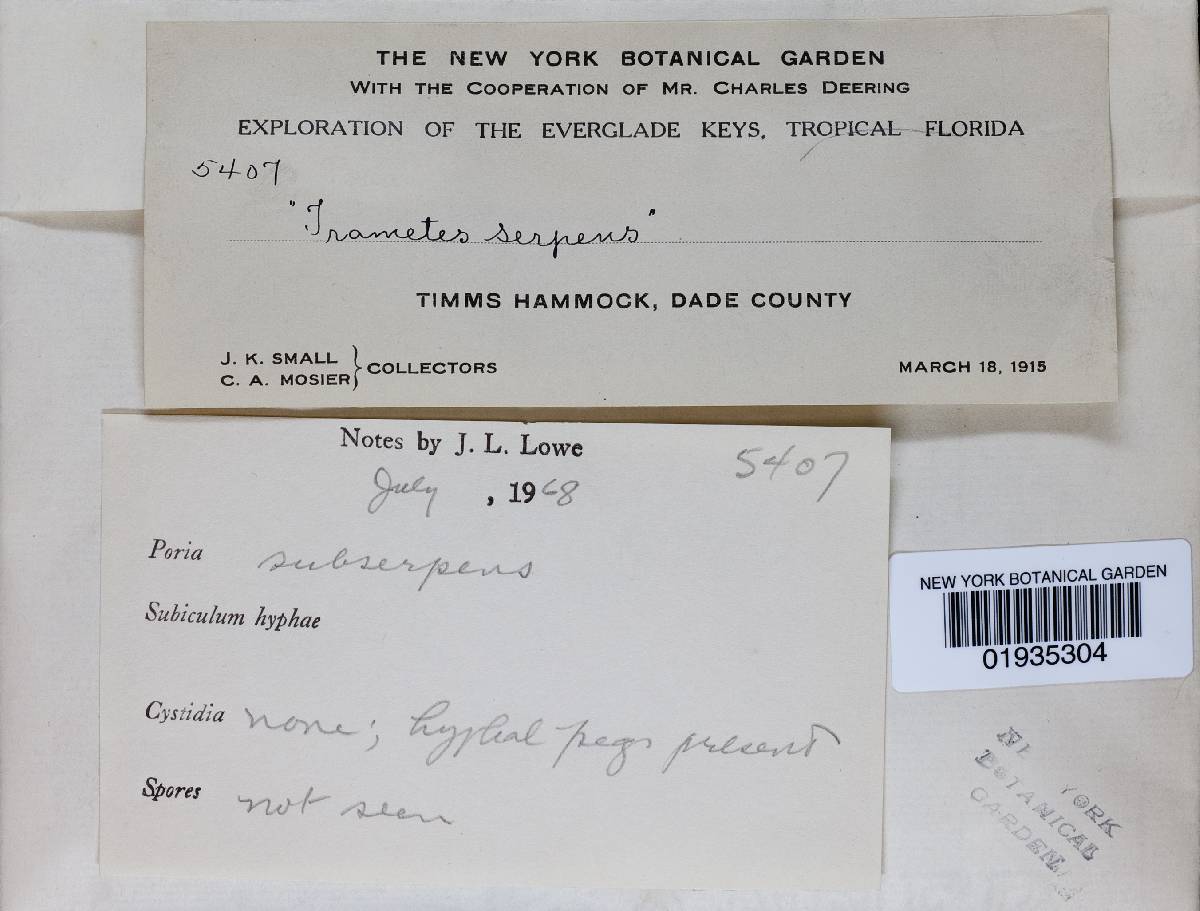 THE NEW YORK BOTANICAL GARDEN
WITH THE COOPERATION OF MR. CHARLES DEERING
EXPLORATION OF THE EVERGLADE KEYS, TROPICAL FLORIDA
5407
"Trametes serpens"
TIMMS HAMMOCK, DADE COUNTY
J. K. SMALL
C. A. MOSIER } COLLECTORS
MARCH 18, 1915
Notes by J. L. Lowe
5407
July , 1968
Poria subserpens
Subiculum hyphae
Cystidia none; hyphal pegs present
Spores not seen
NEW YORK BOTANICAL GARDEN
01935304
YORK
BOTANICAL
GARDEN